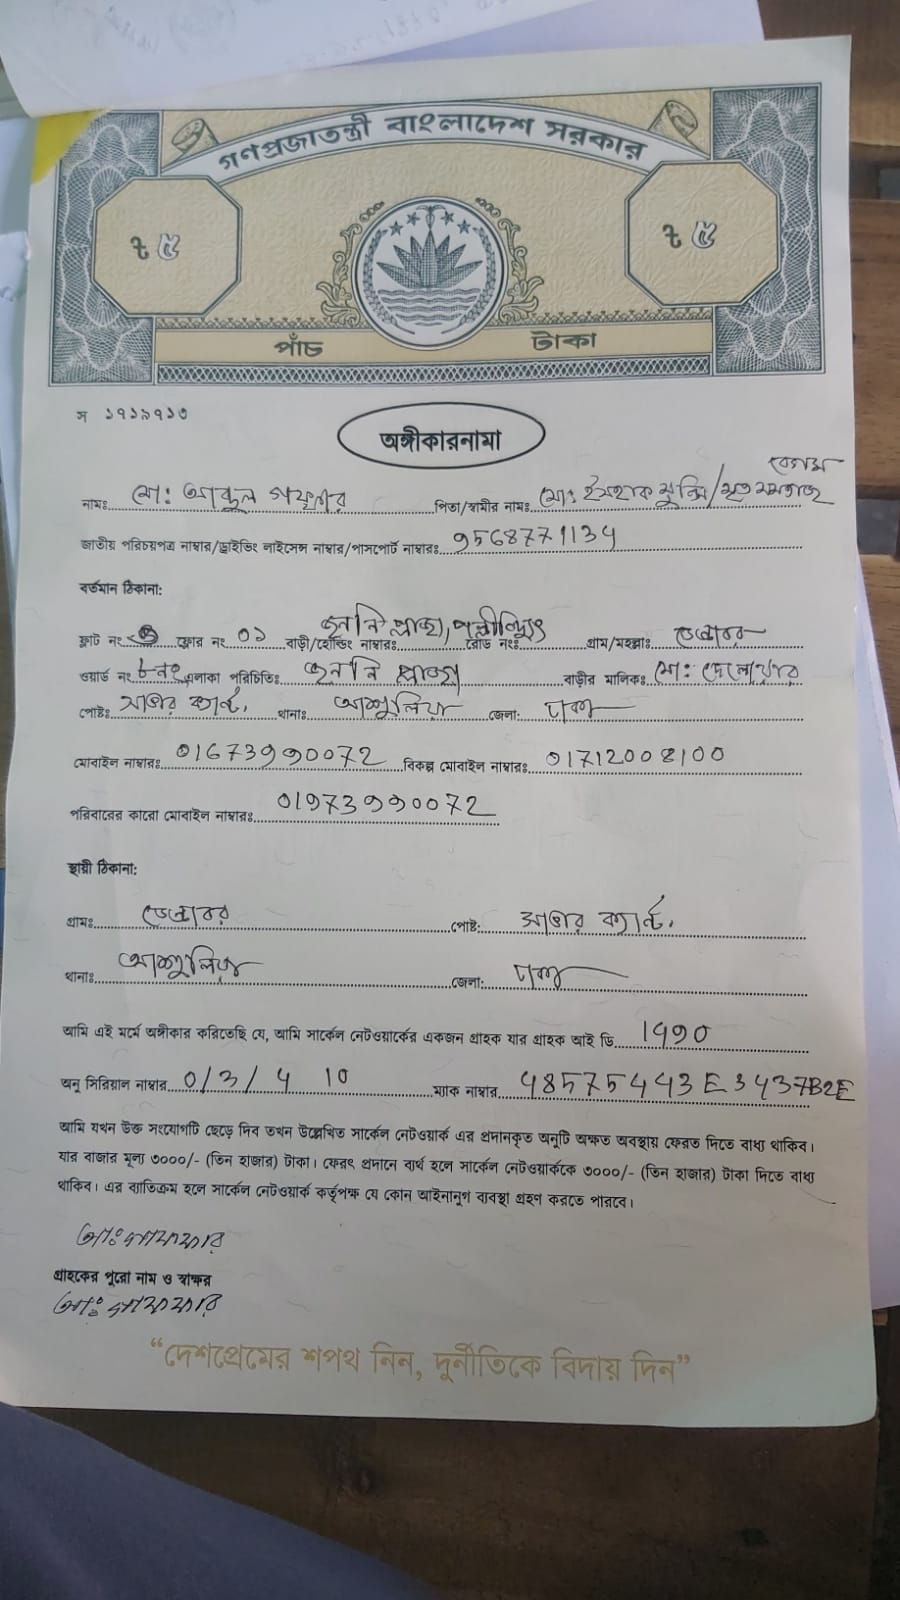 গণপ্রজাতন্ত্রী বাংলাদেশ সরকার
৳ ৫ ৳ ৫
পাঁচ টাকা
স ১৭১৯৭১৩
অঙ্গীকারনামা
বেগম
নামঃ মো: আব্দুল গফ্ফার পিতা/স্বামীর নামঃ মোঃ ইসহাক মুন্সি/মৃত মমতাজ
জাতীয় পরিচয়পত্র নাম্বার/ড্রাইভিং লাইসেন্স নাম্বার/পাসপোর্ট নাম্বারঃ 9568771134
বর্তমান ঠিকানা:
ফ্লাট নং ফ্লোর নং ০১ বাড়ী/হোল্ডিং নাম্বারঃ জননি প্লাজা, পল্লীবিদ্যুৎ রোড নংঃ গ্রাম/মহল্লাঃ ডেন্ডাবর
ওয়ার্ড নং ৮নং এলাকা পরিচিতিঃ জননি প্লাজা বাড়ীর মালিকঃ মো: দেলোয়ার
পোষ্টঃ সাভার ক্যান্ট. থানাঃ আশুলিয়া জেলা: ঢাকা
মোবাইল নাম্বারঃ 01673990072 বিকল্প মোবাইল নাম্বারঃ 01712008100
পরিবারের কারো মোবাইল নাম্বারঃ 01973990072
স্থায়ী ঠিকানা:
গ্রামঃ ডেন্ডাবর পোষ্ট: সাভার ক্যান্ট.
থানাঃ আশুলিয়া জেলা: ঢাকা
আমি এই মর্মে অঙ্গীকার করিতেছি যে, আমি সার্কেল নেটওয়ার্কের একজন গ্রাহক যার গ্রাহক আই ডি 1990
অনু সিরিয়াল নাম্বার 0/3/4 10 ম্যাক নাম্বার 48575443E3437B2E
আমি যখন উক্ত সংযোগটি ছেড়ে দিব তখন উল্লেখিত সার্কেল নেটওয়ার্ক এর প্রদানকৃত অনুটি অক্ষত অবস্থায় ফেরত দিতে বাধ্য থাকিব।
যার বাজার মূল্য ৩০০০/- (তিন হাজার) টাকা। ফেরৎ প্রদানে ব্যর্থ হলে সার্কেল নেটওয়ার্ককে ৩০০০/- (তিন হাজার) টাকা দিতে বাধ্য
থাকিব। এর ব্যতিক্রম হলে সার্কেল নেটওয়ার্ক কর্তৃপক্ষ যে কোন আইনানুগ ব্যবস্থা গ্রহণ করতে পারবে।
আঃ গাফফার
গ্রাহকের পুরো নাম ও স্বাক্ষর
আঃ গাফফার
“দেশপ্রেমের শপথ নিন, দুর্নীতিকে বিদায় দিন”